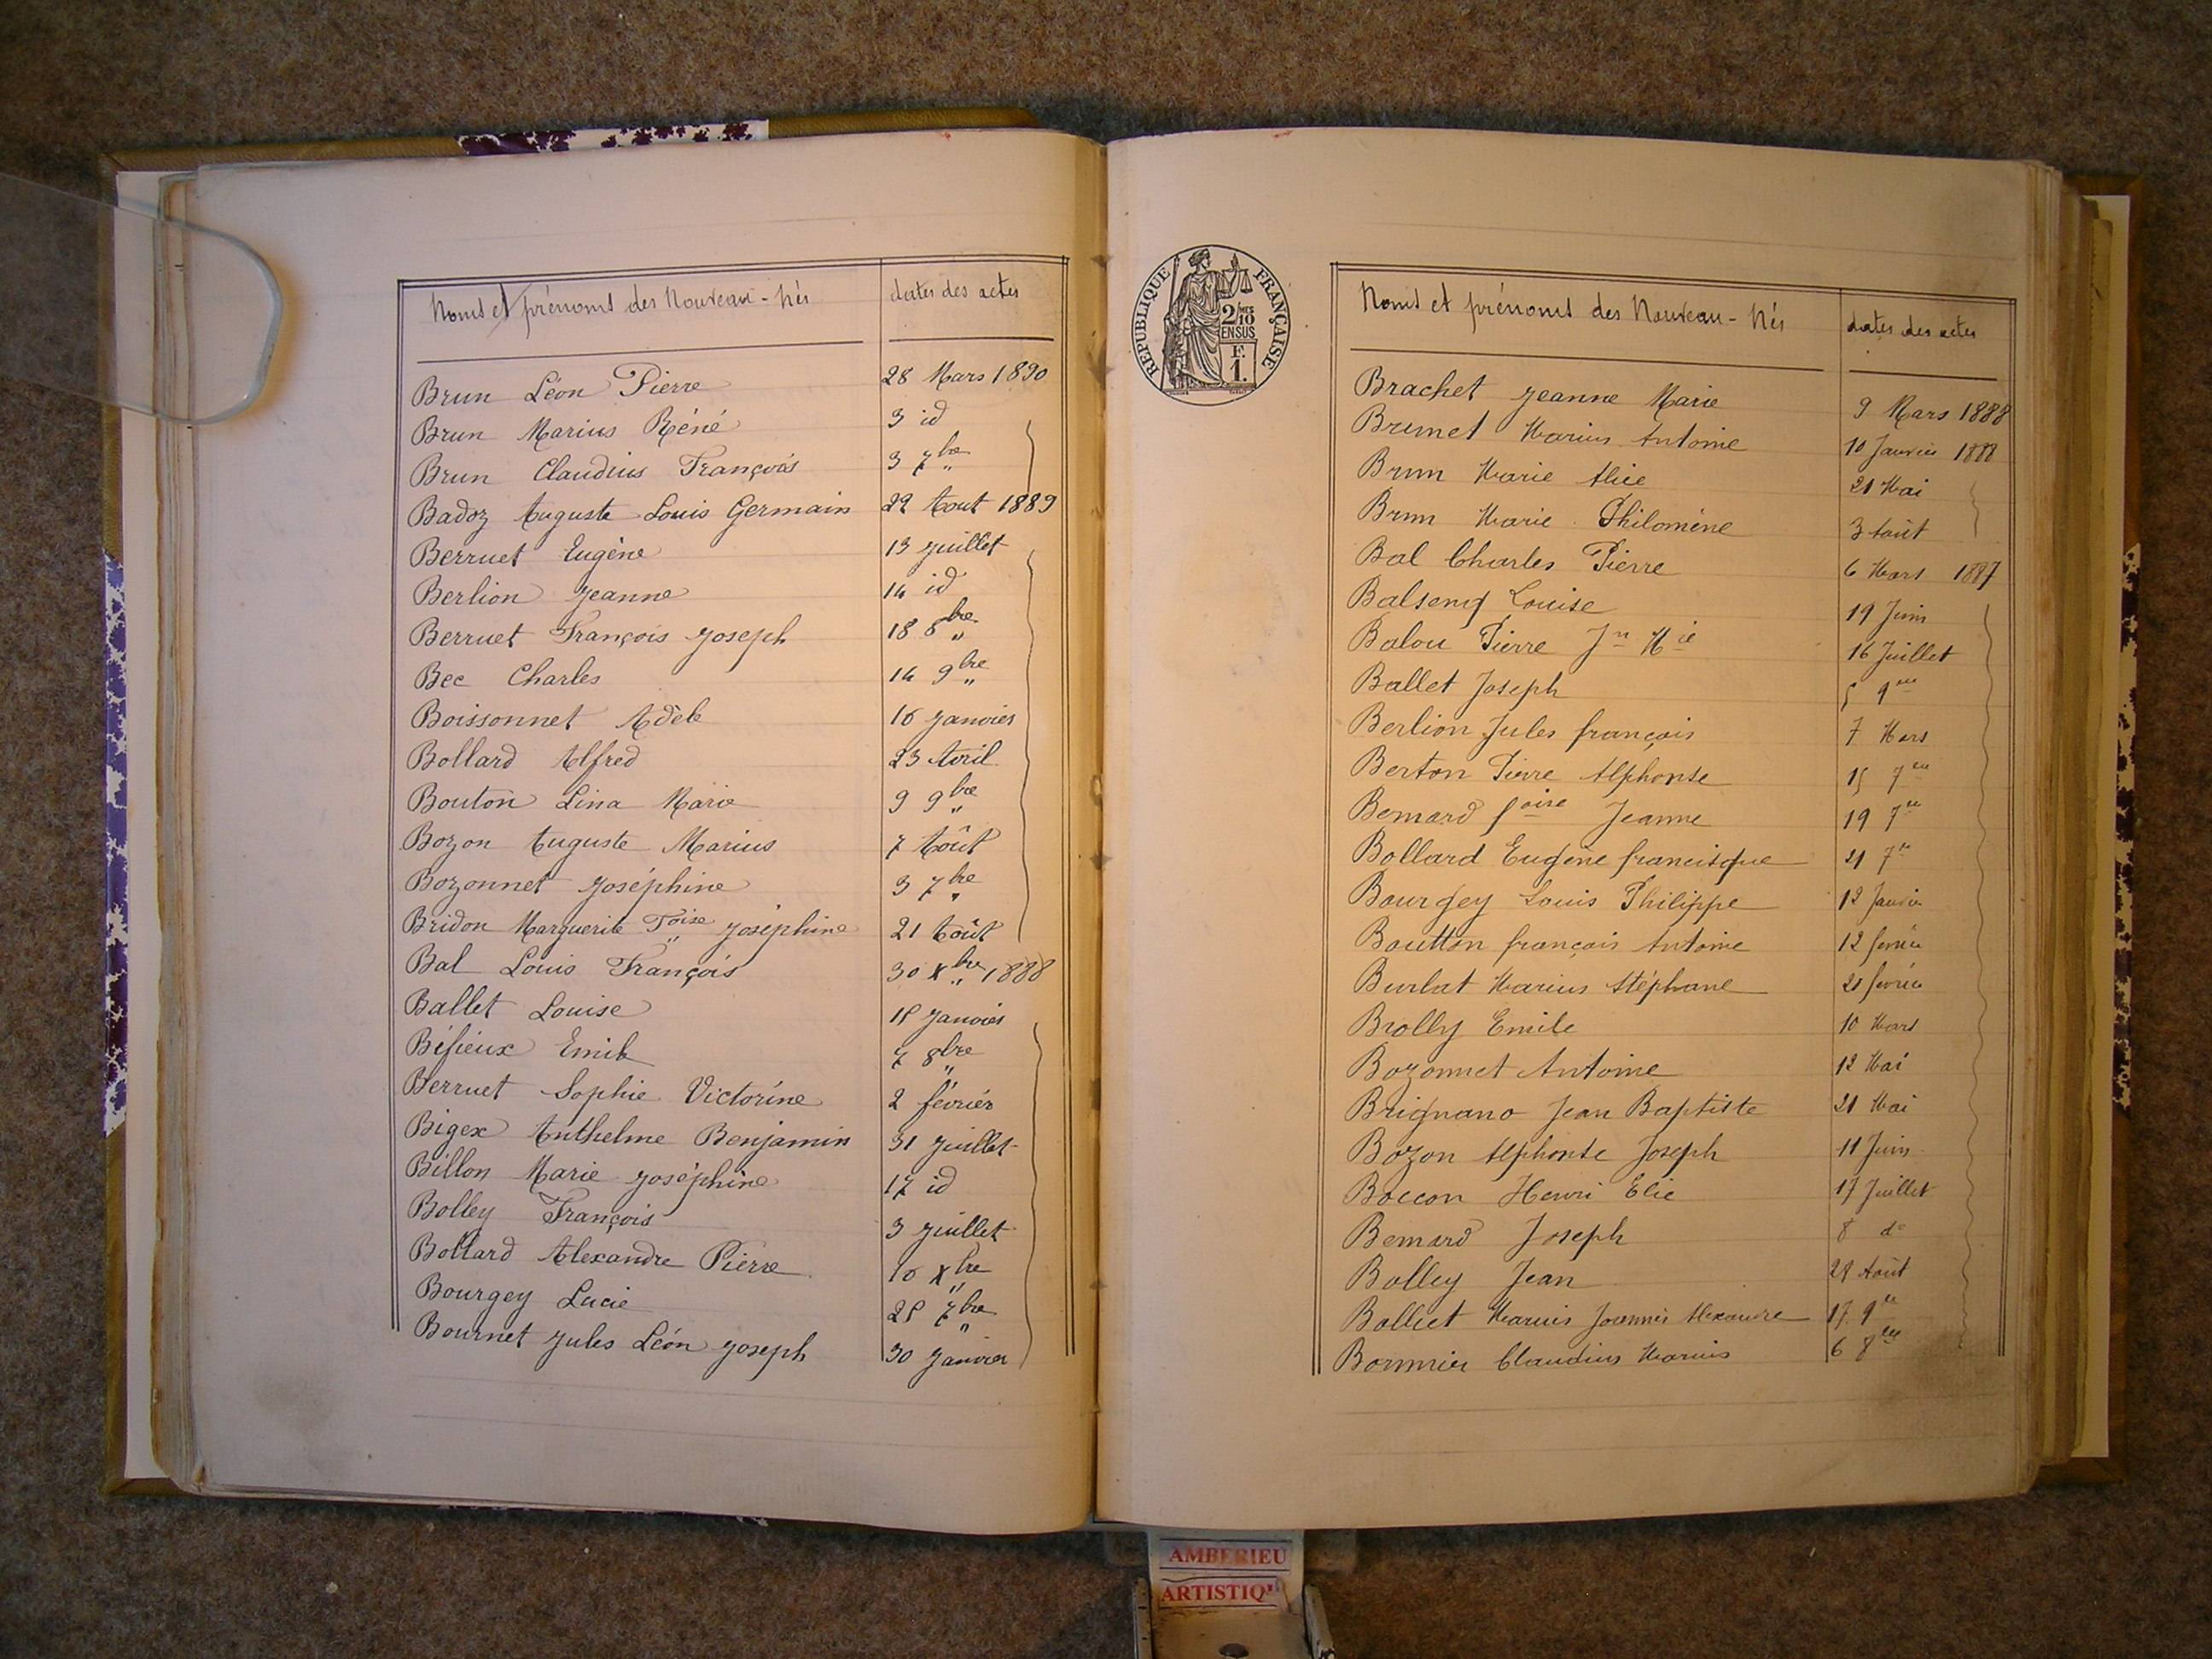 Noms et prénoms des Nouveau-Nés dates des actes
Brun Léon Pierre 28 Mars 1890
Brun Marius Réné 3 id
Brun Claudius François 3 7bre
Badoz Auguste Louis Germain 22 Aout 1889
Berruet Eugène 13 juillet
Berlion Jeanne 14 id
Berruet François Joseph 18 8bre
Bec Charles 14 9bre
Boissonnet Adèle 16 Janvier
Bollard Alfred 23 Avril
Bouton Lina Marie 9 9bre
Bozon Auguste Marius 7 Août
Bozonnet Joséphine 3 7bre
Bridon Marguerite Foise Joséphine 21 Août
Bal Louis François 30 Xbre 1888
Ballet Louise 15 Janvier
Béfieux Emile 7 8bre
Berruet Sophie Victorine 2 février
Bigex Anthelme Benjamin 31 Juillet
Billon Marie Joséphine 17 id
Bolley François 3 Juillet
Bollard Alexandre Pierre 10 Xbre
Bourgey Lucie 25 7bre
Bournet Jules Léon Joseph 30 Janvier
REPUBLIQUE FRANÇAISE
2/10
EN SUS
F.
1.
Noms et prénoms des Nouveau-Nés dates des actes
Brachet Jeanne Marie 9 Mars 1888
Brunet Marius Antoine 10 Janvier 1888
Brun Marie Alice 21 Mai
Brun Marie Philomène 3 Août
Bal Charles Pierre 6 Mars 1887
Louise 19 Juin
Balou Pierre Jn Mie 16 Juillet
Ballet Joseph 5 9bre
Berlion Jules françois 7 Mars
Berton Pierre Alphonse 15 7bre
Bernard foise Jeanne 19 7bre
Bollard Eugène francisque 21 7bre
Bourgey Louis Philippe 12 Janvier
Boutton françois Antoine 12 février
Burlat Marius Stéphane 21 février
Brolly Emile 10 Mars
Bozonnet Antoine 12 Mai
Brignano Jean Baptiste 21 Mai
Bozon Alphonse Joseph 11 Juin
Boccon Henri Elie 17 Juillet
Bernard Joseph 8 do
Bolley Jean 28 Août
Balliet Marius Joannès Alexandre 17 9bre
Bormier Claudius Marius 6 8bre
AMBERIEU
ARTISTIQ